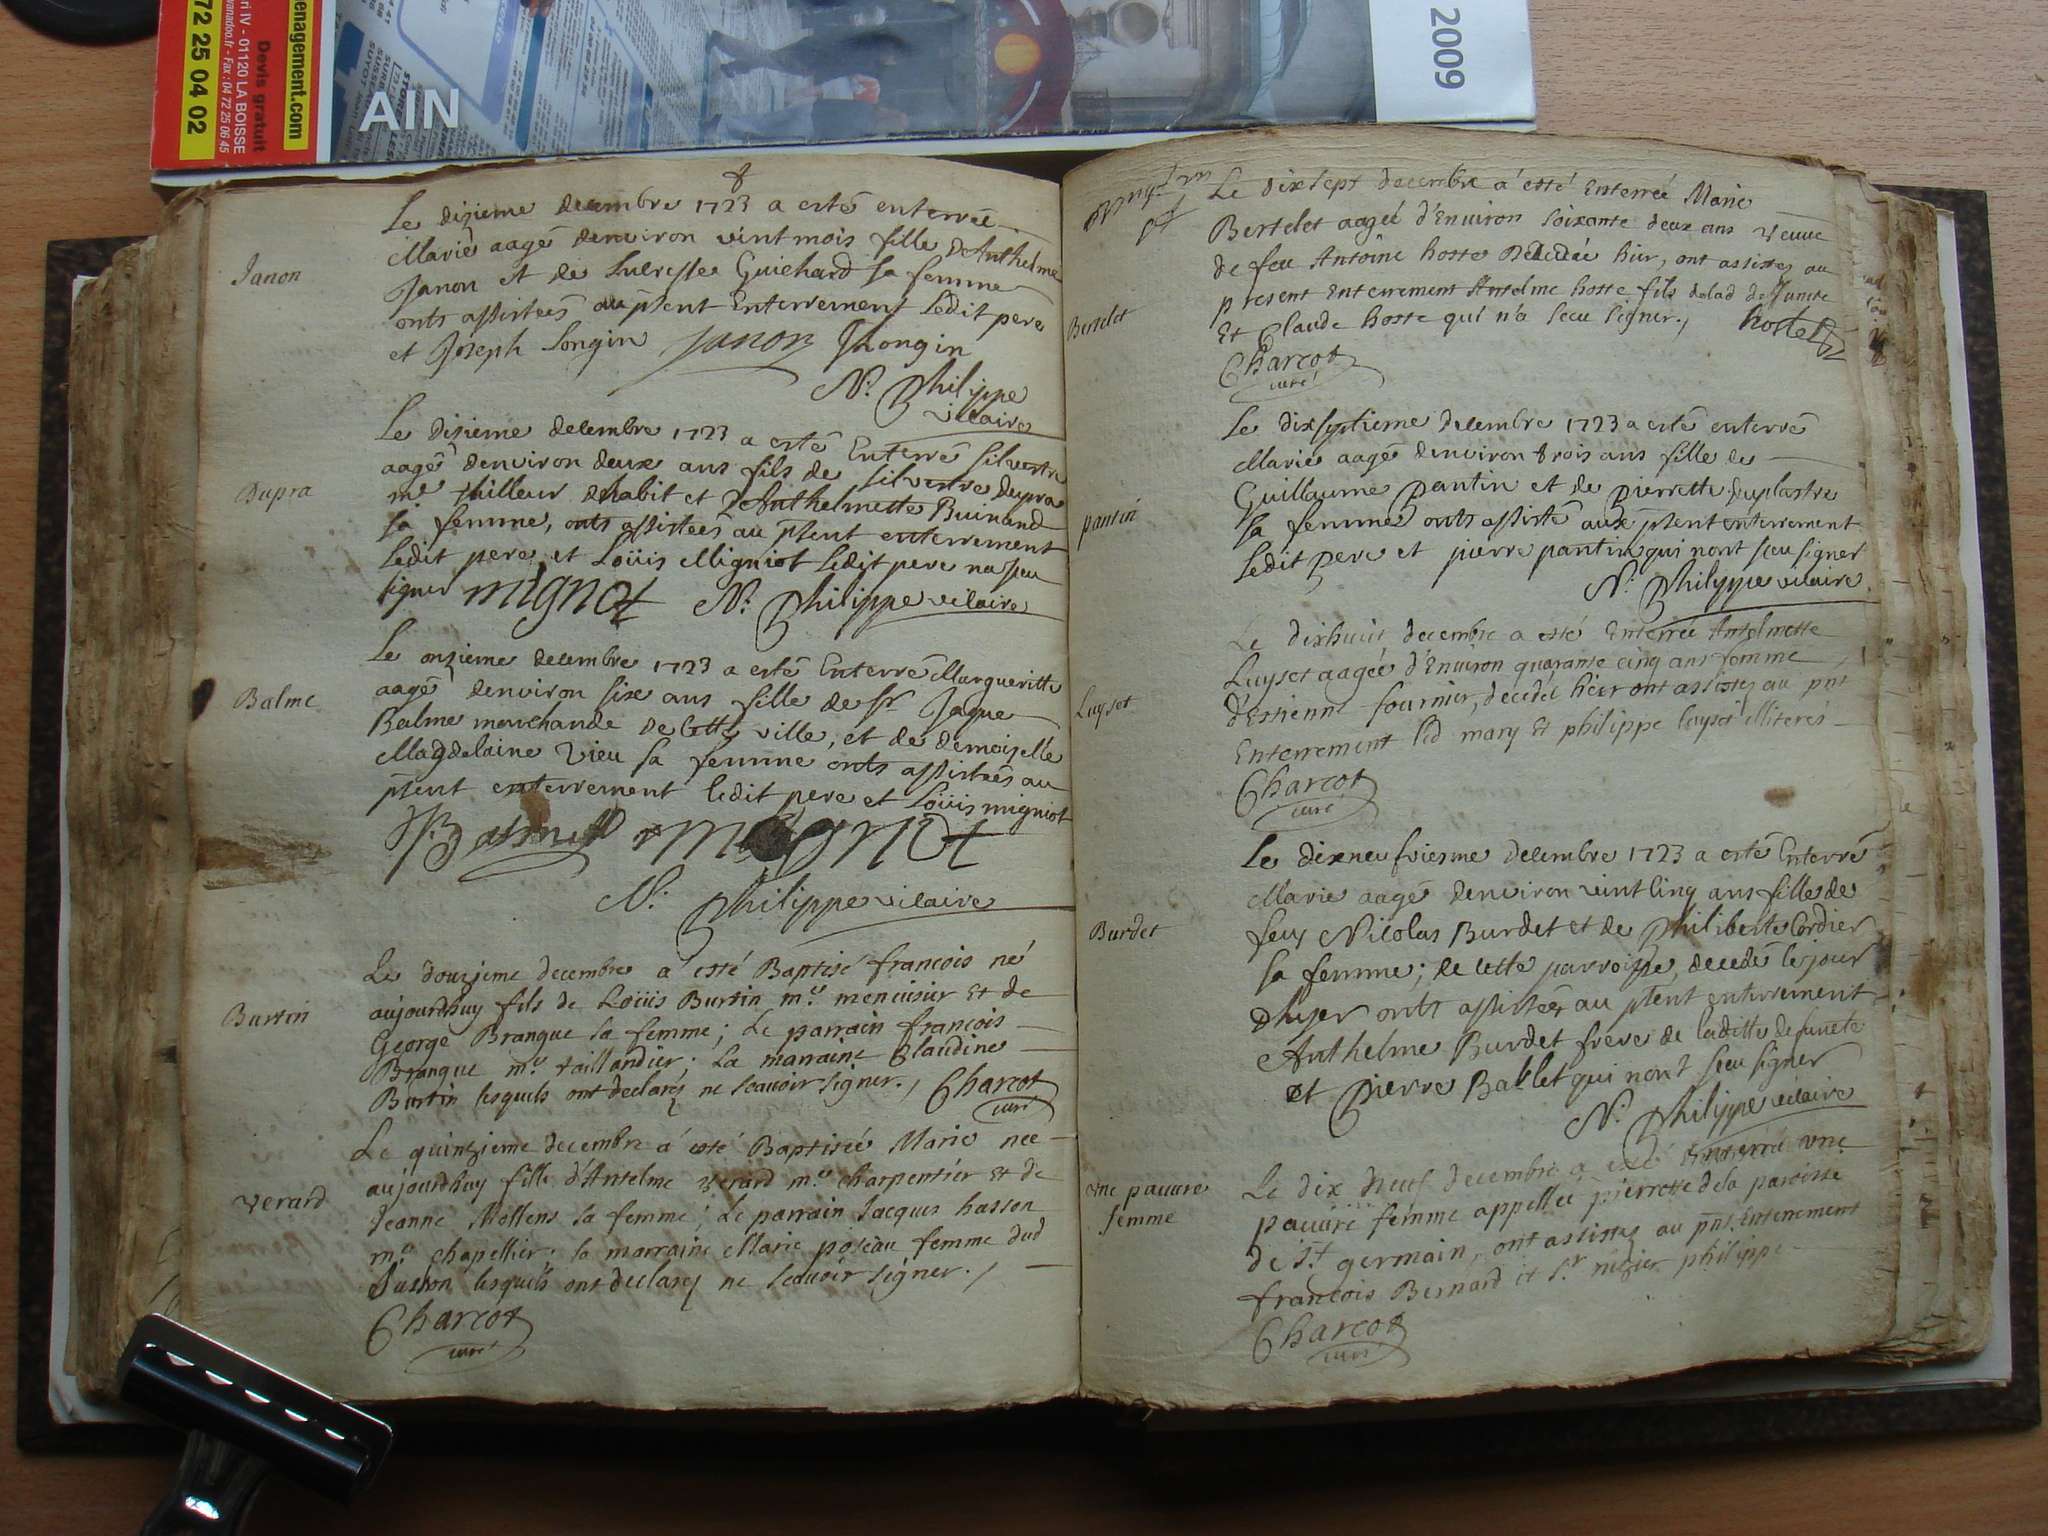 enagement.com
Devis gratuit
ri IV - 01120 LA BOISSE
vanadoo.fr - Fax : 04 72 25 06 45
72 25 04 02
AIN
2009
Janon
Le dizieme decembre 1723 a esté enterrée
Marie aagé denviron vint mois fille De Anthelme
Janon et de Guichard sa femme
onts assistées au psent Enterrement ledit pere
et Joseph Longin Janon JLongin
N: Philippe
vicaire
Dupra
Le dizieme decembre 1723 a esté Enterré silvestre
aagé denviron deux ans fils de silvestre dupra
me thilleur dhabit et D'Anthelmette Buinand
sa femme, onts assistées au psent enterrement
ledit pere et Loüis Migniot ledit pere na sceu
signer mignot N: Philippe vicaire
Balme
Le onzieme decembre 1723 a esté Enterré Margueritte
aagé denviron six ans fille de sr Jaque
Balme marchande de cette ville, et de demoizelle
Magdelaine Vieu sa femme onts assistées au
psent enterrement ledit pere et Loüis migniot
mignot
N: Philippe vicaire
Burtin
Le douzieme decembre a esté Baptisé francois né
aujourdhuy fils de Loüis Burtin me menuisier Et de
George Branque sa femme; Le parrain francois
Branque me taillandier; La marraine Claudine
Burtin lesquels ont declarez ne scavoir signer., Charcot
curé
verard
Le quinzieme decembre a esté Baptisée Marie née
aujourdhuy fille d'Antelme verard me charpentier et de
Jeanne Mollens sa femme; Le parrain Jacques hasson
me chapellier. la marraine Marie pozeau femme dud
lesquels ont declarez ne scavoir signer.,
Charcot
curé
Bertelet
Le dixsept decembre a esté Enterrée Marie
Bertelet aagée d'Environ soixante deux ans veuve
de feu Antoine hoste Decedée hier, ont assistez au
present enterrement Antelme hoste fils de lad defunte
Et Claude hoste qui n'a sceu signer., hoste
Charcot
curé
pantin
Le dixseptieme decembre 1723 a esté enterré
Marie aagé denviron trois ans fille de
Guillaume Pantin et de Pierrette duplastre
sa femme onts assisté aux psent enterrement
ledit Pere et pierre pantin qui nont sceu signer
N: Philippe vicaire
Luyset
Le dixhuit decembre a esté Enterrée Antelmette
Luyset aagée d'Environ quarante cinq ans femme
d'Estienne fournier, decedée hier ont assistez au pnt
Enterrement led mary Et philippe luyset illiterés
Charcot
curé
Burdet
Le dixneufviesme decembre 1723 a esté Enterré
Marie aagé denviron vint cinq ans fille de
feu Nicolas Burdet et de Philiberte Cordier
sa femme; de cette parroisse, decedé le jour
dhyer onts assistées au psent enterrement
Anthelme Burdet frere de laditte defunete
et Pierre Ballet qui nont sceu signer
N: Philippe vicaire
une pauvre
femme
Le dix neuf decembre a esté Enterré une
pauvre femme appellée pierrette de la paroisse
de St germain, ont assistez au pnt. Enterrement
francois Bernard et Sr nizier philippe
Charcot
curé